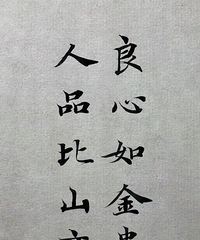 良心如金
人品比山